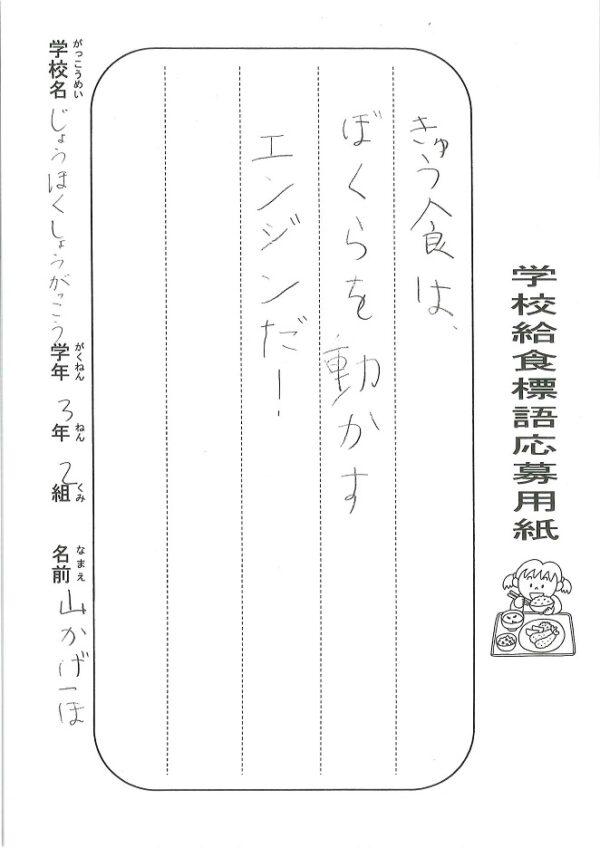 学校給食標語応募用紙
きゅう食は、
ぼくらを動かす
エンジンだー
がっこうめい
学校名 じょうほくしょうがっこう
がくねん ねん くみ
学年 3年 2組
なまえ
名前 山かげ一ほ